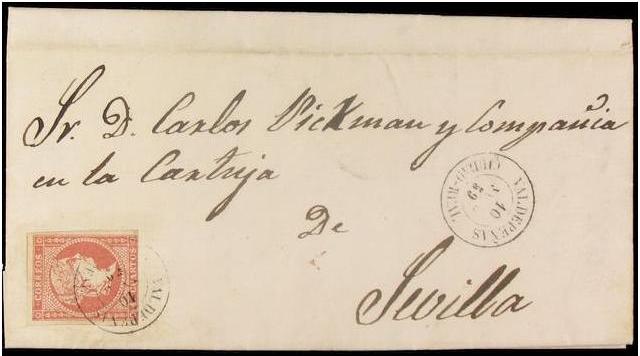 Sr. D. Carlos Pickman y Compañia
en la Cartuja
De
Sevilla
VALDEPEÑAS
CIUDAD-REAL
10
CORREOS
CUARTOS
VALDEPEÑAS
10